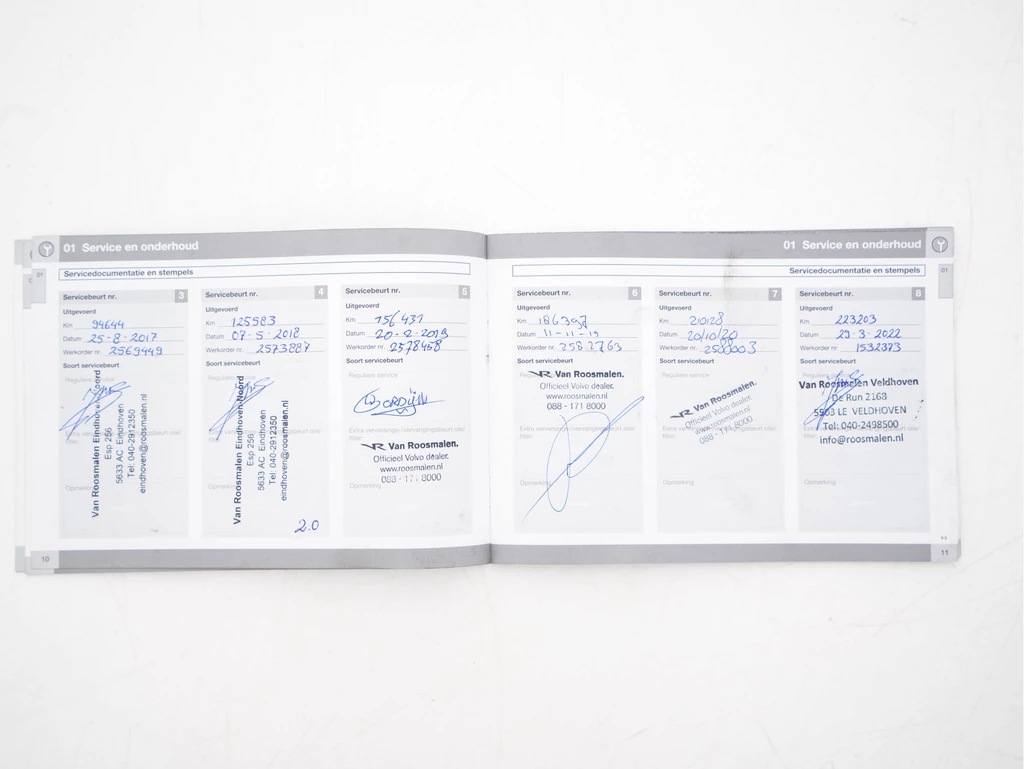 01 Service en onderhoud
Servicedocumentatie en stempels
Servicebeurt nr. 3
Uitgevoerd
Km 94644
Datum 25-8-2017
Werkorder nr. 2569449
Soort servicebeurt
Reguliere
Van Roosmalen Eindhoven-Noord
Esp 256
5633 AC Eindhoven
Tel: 040-2912350
eindhoven@roosmalen.nl
Opmerking
Servicebeurt nr. 4
Uitgevoerd
Km 125583
Datum 07-5-2018
Werkorder nr. 2573887
Soort servicebeurt
Reguliere
Van Roosmalen Eindhoven-Noord
Esp 256
5633 AC Eindhoven
Tel: 040-2912350
eindhoven@roosmalen.nl
Opmerking
2.0
Servicebeurt nr. 5
Uitgevoerd
Km 156431
Datum 20-2-2019
Werkorder nr. 2578458
Soort servicebeurt
Reguliere service
Extra verversings-/vervangingsbeurt olie/
filter
Van Roosmalen.
Officieel Volvo dealer.
www.roosmalen.nl
088 - 171 8000
Opmerking
10
01 Service en onderhoud
01
Servicedocumentatie en stempels
Servicebeurt nr. 6
Uitgevoerd
Km 186397
Datum 11-11-19
Werkorder nr. 2582763
Soort servicebeurt
Van Roosmalen.
Officieel Volvo dealer.
www.roosmalen.nl
088 - 171 8000
Opmerking
Servicebeurt nr. 7
Uitgevoerd
Km 210128
Datum 20/10/20
Werkorder nr.
Soort servicebeurt
Reguliere service
Van Roosmalen.
Officieel Volvo dealer.
www.roosmalen.nl
088 - 171 8000
Opmerking
Servicebeurt nr. 8
Uitgevoerd
Km 223203
Datum 29-3-2022
Werkorder nr. 1532373
Soort servicebeurt
Van Roosmalen Veldhoven
De Run 2163
5503 LE VELDHOVEN
Tel: 040-2498500
info@roosmalen.nl
Opmerking
11